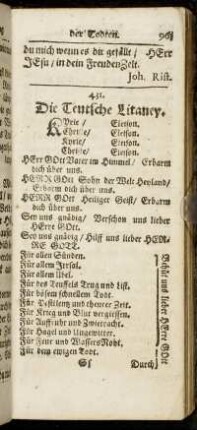 der Todten. 961
du mich wenn es dir gefället / HErr
JEsu / in dein FreudenZelt.
Joh. Rist.
431.
Die Teutsche Litaney.
KYrie / Eleison.
Christe / Eleison.
Kyrie / Eleison.
Christe / Eleison.
HErr GOtt Vater im Himmel / Erbarm
dich über uns.
HERR GOtt Sohn der Welt Heyland /
Erbarm dich über uns.
HERR GOtt Heiliger Geist / Erbarm
dich über uns.
Sey uns gnädig / Verschon uns lieber
HErre GOtt.
Sey uns gnädig / Hülff uns lieber HER-
RE GOTT.
Für allen Sünden.
Für allem Irrsal.
Für allem Übel.
Für des Teuffels Trug und List.
Für bösem schnellem Todt.
Für Pestilentz und theurer Zeit.
Für Krieg und Blut vergiessen.
Für Auffruhr und Zwietracht.
Für Hagel und Ungewitter.
Für Feur und Wassers Noht.
Für dem ewigen Todt.
Behüt uns lieber HErre GOtt
Durch